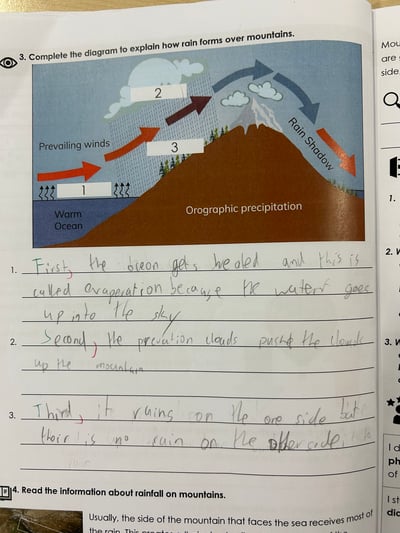 3. Complete the diagram to explain how rain forms over mountains.
2
Prevailing winds
3
Rain Shadow
1
Warm
Ocean
Orographic precipitation
1. First, the ocean gets heated and this is
called evaperation because the water goes
up into the sky
2. Second, the prevation clouds push the clouds
up the mountain
3. Third, it rains on the one side but
their is no rain on the other side,
4. Read the information about rainfall on mountains.
Usually, the side of the mountain that faces the sea receives most of
the rain. This
Mou
are
side
1.
2. W
3. W
I d
ph
of
I st
dic